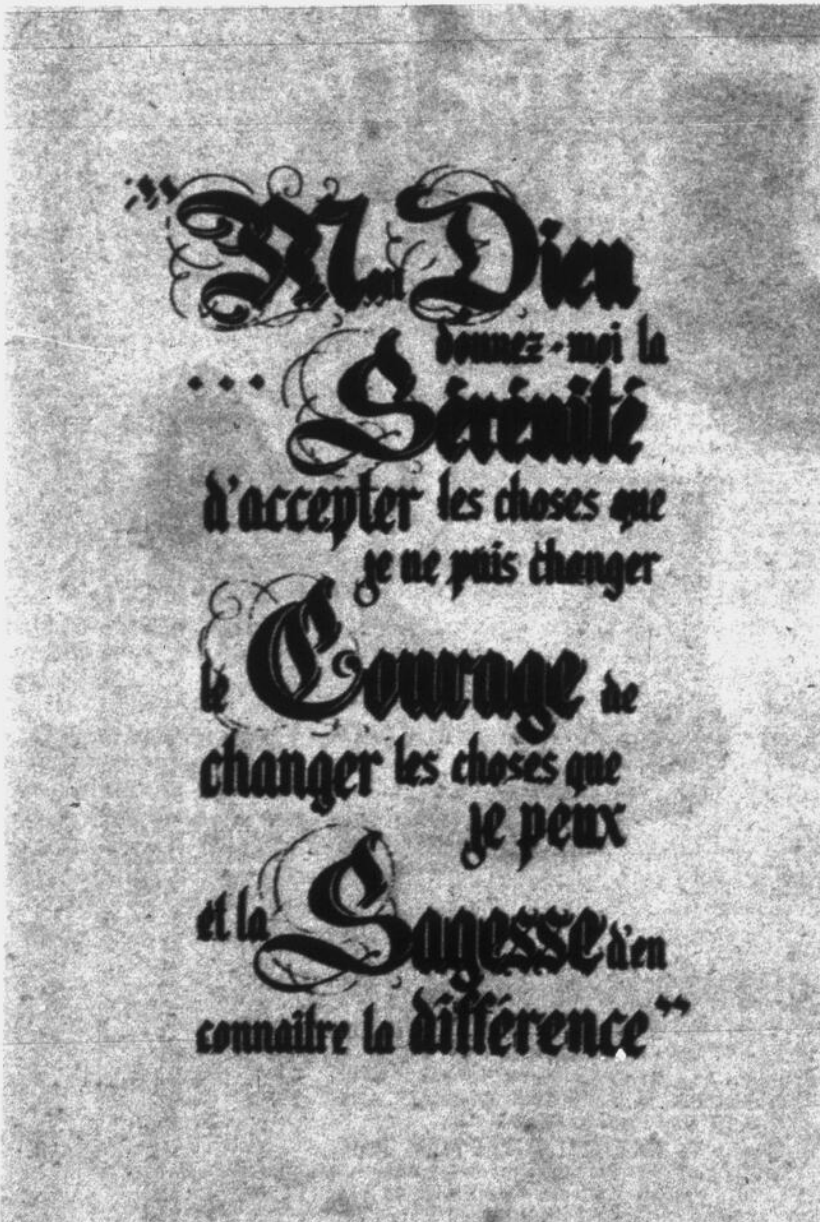 "Mon Dieu
donnez-moi la
... Sérénité
d'accepter les choses que
je ne puis changer
le Courage de
changer les choses que
je peux
et la Sagesse d'en
connaître la différence"